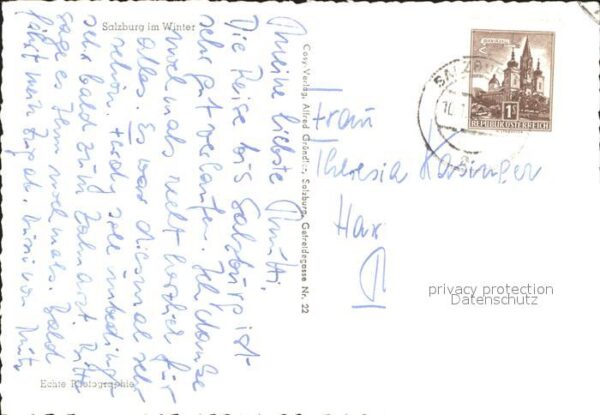 Salzburg im Winter
Meine liebste Mutti,
Die Reise bis Salzburg ist
sehr gut verlaufen. Ich danke
nochmals recht herzlich für
alles. Es war diesmal sehr
schön. soll unbedingt
sehr bald zum Zahnarzt. Bitte
sage es Ihm nochmals. Bald
fährt mein Zug ab.
Echte Photographie
Cosy-Verlag, Alfred Gründler, Salzburg, Getreidegasse Nr. 22
SALZBURG
MARIAZELL
1S
REPUBLIK ÖSTERREICH
Frau
Theresia
privacy protection
Datenschutz